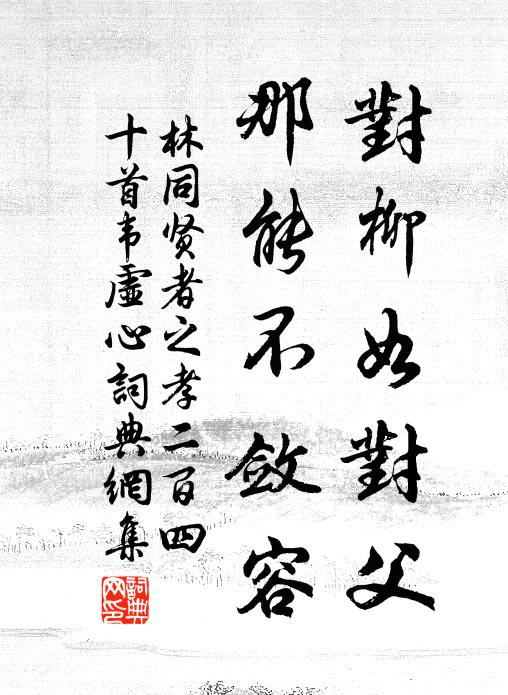 對柳如對父
那能不斂容
林同贤者之孝二百四
十首韦虛心詞典網集
詞典网印